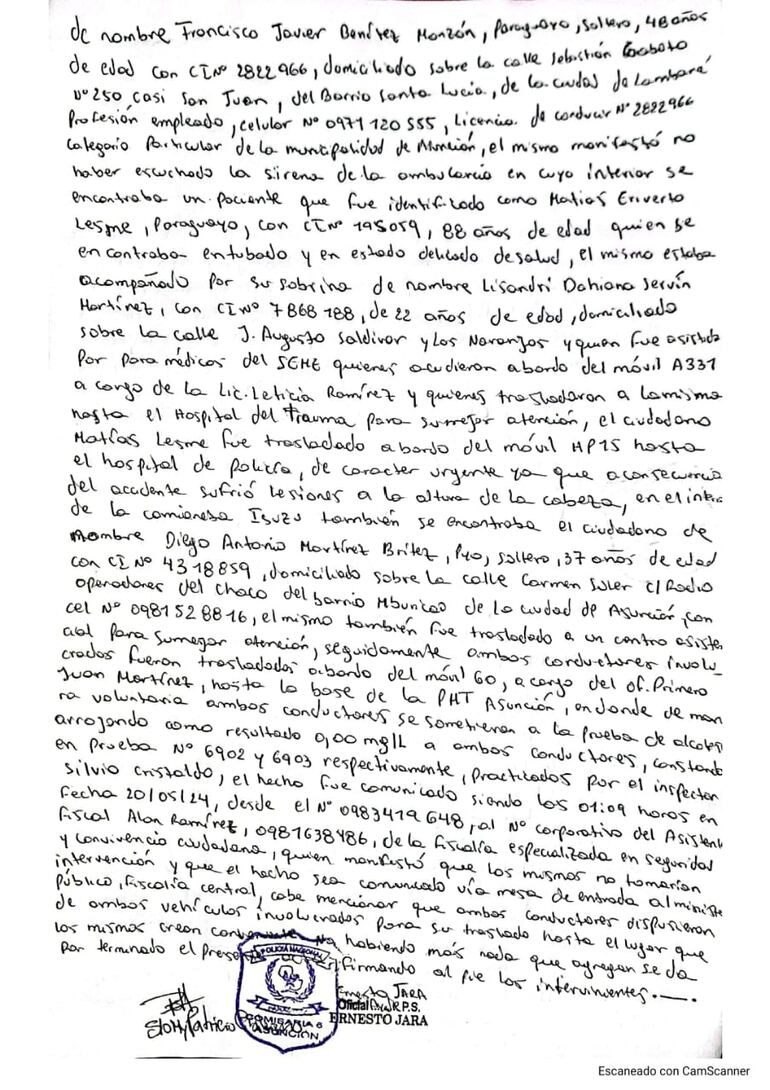 de nombre Francisco Javier Benítez Monzón, Paraguayo, soltero, 48 años
de edad con CI Nº 2822966, domiciliado sobre la calle Sebastián Gaboto
Nº 250 casi San Juan, del Barrio Santa Lucía, de la ciudad de Lambaré
Profesión empleado, celular Nº 0971 120 555, Licencia de conducir Nº 2822966
categoría Particular de la municipalidad de Asunción, el mismo manifestó no
haber escuchado la sirena de la ambulancia en cuyo interior se
encontraba un paciente que fue identificado como Matías Eriverto
Lesme, Paraguayo, con CI Nº 195059, 88 años de edad quien se
encontraba entubado y en estado delicado de salud, el mismo estaba
acompañado por su sobrina de nombre Lisandri Dahiana Servín
Martínez, con CI Nº 7868188, de 22 años de edad, domiciliado
sobre la calle J. Augusto Saldivar y Los Naranjos y quien fue asistida
Por paramédicos del SEME quienes acudieron abordo del móvil A331
a cargo de la Lic. Leticia Ramírez y quienes trasladaron a la misma
hasta el Hospital del Trauma para su mejor atención, el ciudadano
Matías Lesme fue trasladado abordo del móvil HP15 hasta
el hospital de Policía, de caracter urgente ya que a consecuencia
del accidente sufrió lesiones a la altura de la cabeza, en el inte
de la camioneta Isuzu también se encontraba el ciudadano de
nombre Diego Antonio Martínez Britez, Pyo, soltero, 37 años de edad
con CI Nº 4318859, domiciliado sobre la calle Carmen Soler c/ Radio
operadores del chaco del barrio Mburicao de la ciudad de Asunción, con
cel Nº 0981528816, el mismo también fue trasladado a un centro asisten
cial para su mejor atención, seguidamente ambos conductores involu_
crados fueron trasladados abordo del móvil 60, a cargo del Of. Primero
Juan Martínez, hasta la base de la PMT Asunción, en donde de man
ra voluntaria ambos conductores se sometieron a la prueba de alcotes
arrojando como resultado 0,00 mg/L a ambos conductores, constando
en Prueba Nº 6902 y 6903 respectivamente, practicados por el inspector
Silvio Cristaldo, el hecho fue comunicado siendo las 01:09 horas en
Fecha 20/05/24, desde el Nº 0983419648, al Nº corporativo del Asistent
Fiscal Alan Ramírez, 0981638486, de la fiscalía especializada en seguridad
y convivencia ciudadana, quien manifestó que los mismos no tomarían
intervención y que el hecho sea comunicado vía mesa de entrada al ministe
público, Fiscalía central, cabe mencionar que ambos conductores dispusieron
de ambos vehículos involucrados para su traslado hasta el lugar que
los mismos crean conveniente. No habiendo más nada que agregar se da
por terminado el firmando al pie los intervinientes.—.
POLICIA NACIONAL
COMISARIA 6
ASUNCION
Ernesto JARA
Oficial R.P.S.
ERNESTO JARA
Escaneado con CamScanner